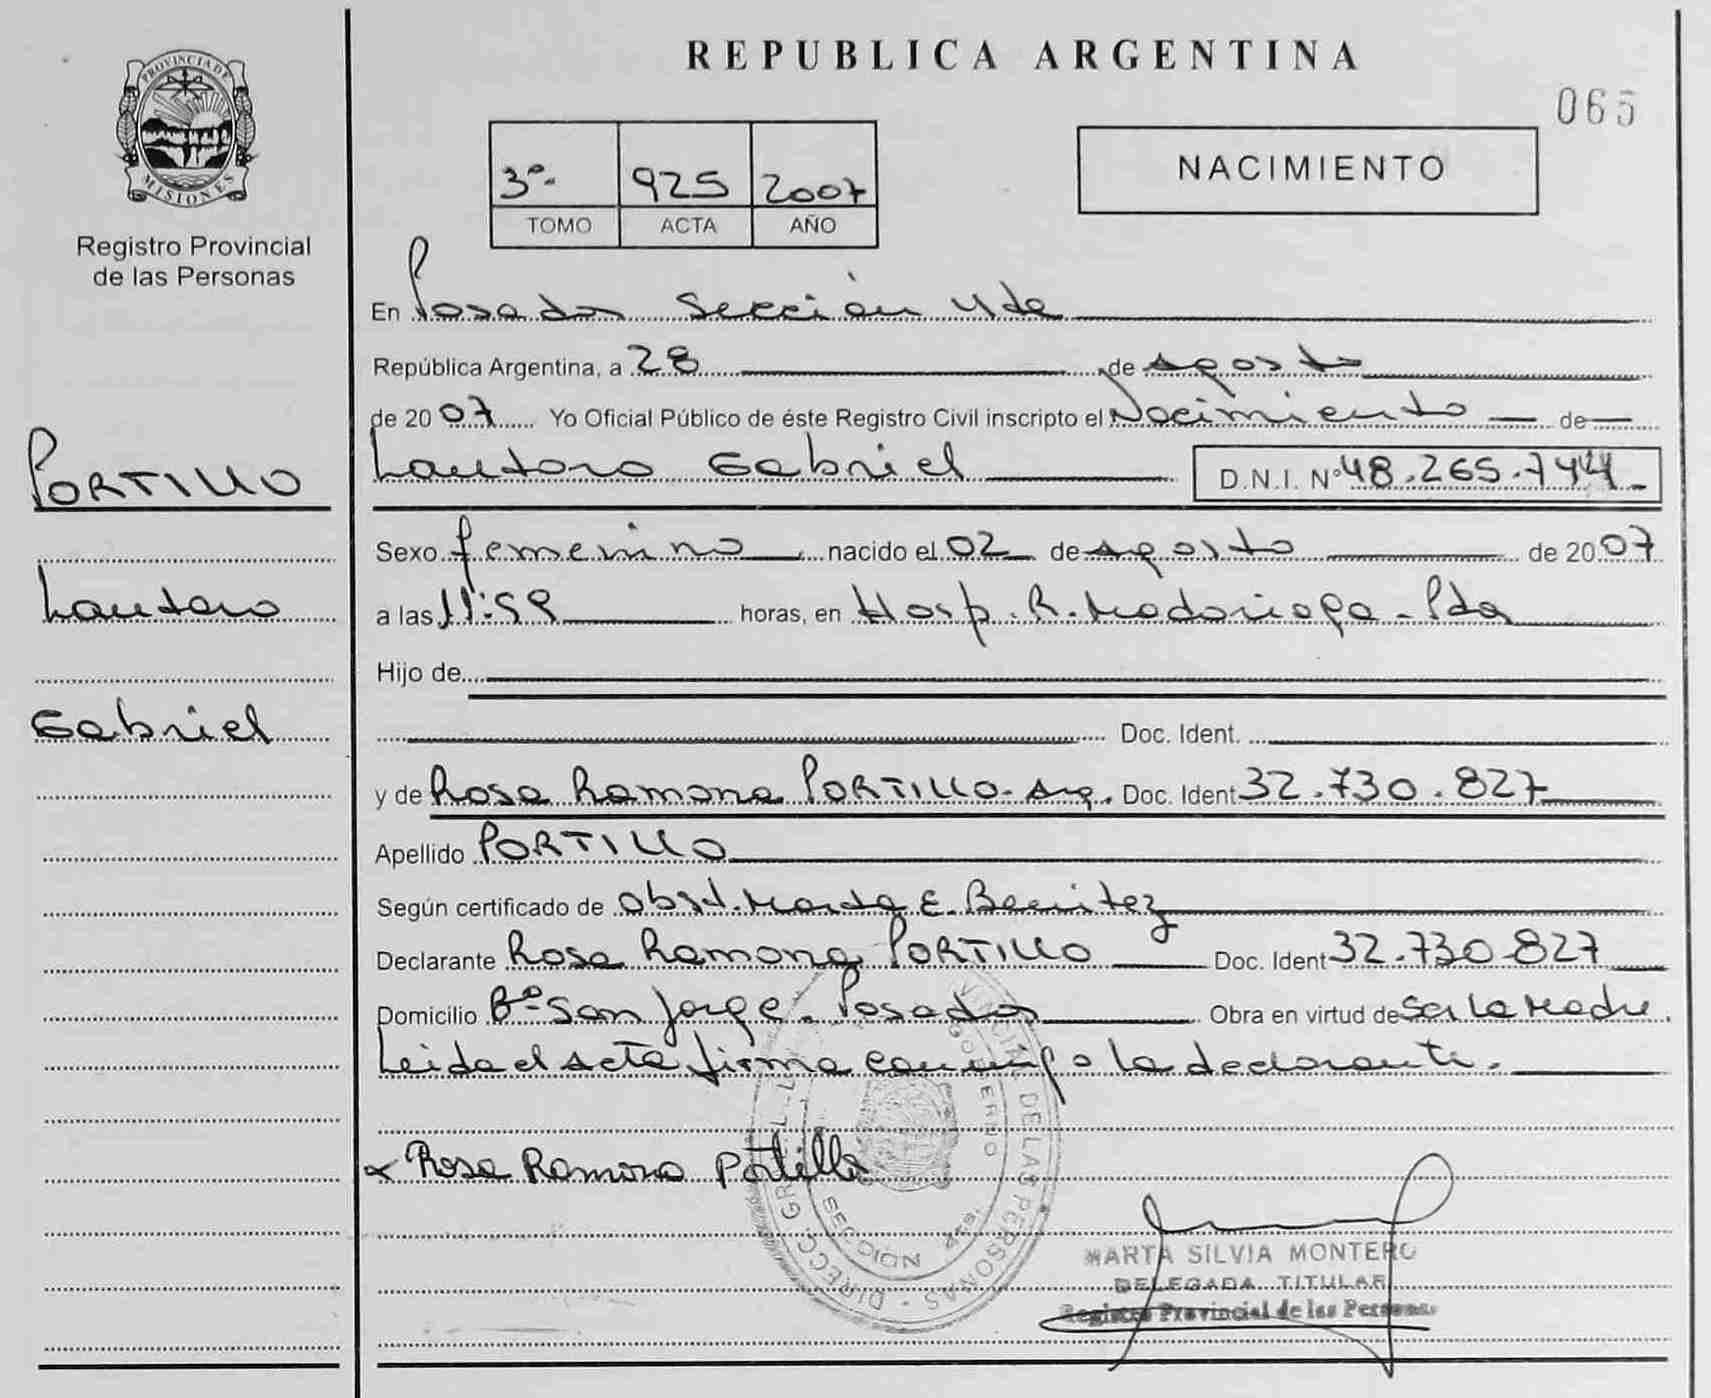 PROVINCIA DE
MISIONES
Registro Provincial
de las Personas
PORTILLO
Lautaro
Gabriel
REPUBLICA ARGENTINA
065
3º- 925 2007
TOMO ACTA AÑO
NACIMIENTO
En Posadas Sección 4ta
República Argentina, a 28 de agosto
de 2007 Yo Oficial Público de éste Registro Civil inscripto el Nacimiento de
Lautaro Gabriel D.N.I. Nº 48.265.744
Sexo femenino nacido el 02 de agosto de 2007
a las 11:59 horas, en Hosp. R. Madariaga - Pdas
Hijo de
Doc. Ident.
y de Rosa Ramona PORTILLO - Arg. Doc. Ident 32.730.827
Apellido PORTILLO
Según certificado de Obst. Marta E. Benitez
Declarante Rosa Ramona PORTILLO Doc. Ident 32.730.827
Domicilio Bº San Jorge. Posadas Obra en virtud de Ser la Madre.
Leida el Acta firma conmigo la declarante.
Rosa Ramona Portillo
MARTA SILVIA MONTERO
DELEGADA TITULAR
Registro Provincial de las Personas